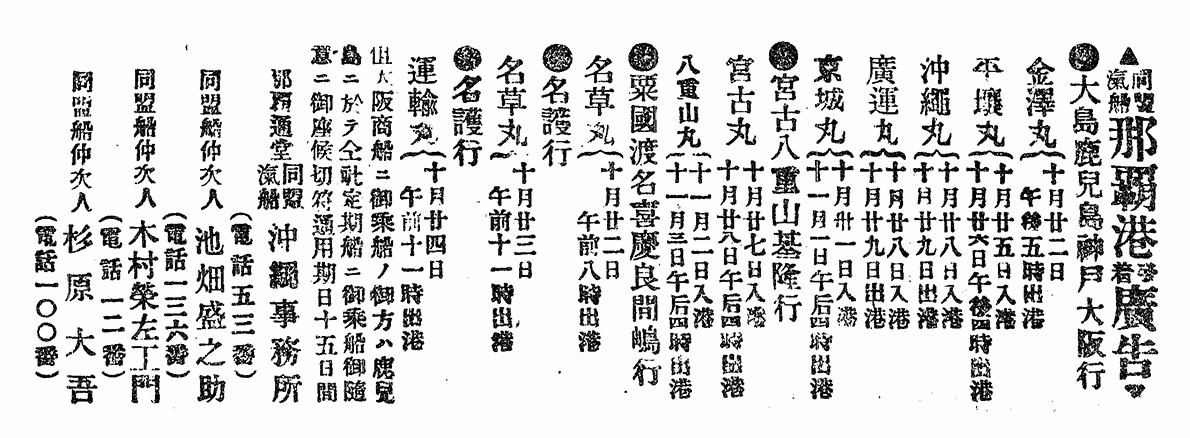 ▲同盟汽船那覇港發着廣告▼
●大島鹿兒島神戸大阪行
金澤丸 十月廿二日
午後五時出港
平壤丸 十月廿五日入港
十月廿六日午後四時出港
沖繩丸 十月廿八日入港
十月廿九日出港
廣運丸 十月廿八日入港
十月廿九日出港
京城丸 十月卅一日入港
十一月一日午后四時出港
●宮古八重山基隆行
宮古丸 十月廿七日入港
十月廿八日午后四時出港
八重山丸 十一月二日入港
十一月三日午后四時出港
●粟國渡名喜慶良間嶋行
名草丸 十月廿二日
午前八時出港
●名護行
名草丸 十月廿三日
午前十一時出港
●名護行
運輸丸 十月廿四日
午前十一時出港
但大阪商船ニ御乘船ノ御方ハ鹿兒
島ニ於テ仝社定期船ニ御乘船御隨
意ニ御座候切符通用期日十五日間
那覇通堂 同盟汽船 沖繩事務所
(電話五三番)
同盟船仲次人 池畑盛之助
(電話一三六番)
同盟船仲次人 木村榮左工門
(電話一二番)
同盟船仲次人 杉原大吾
(電話一〇〇番)